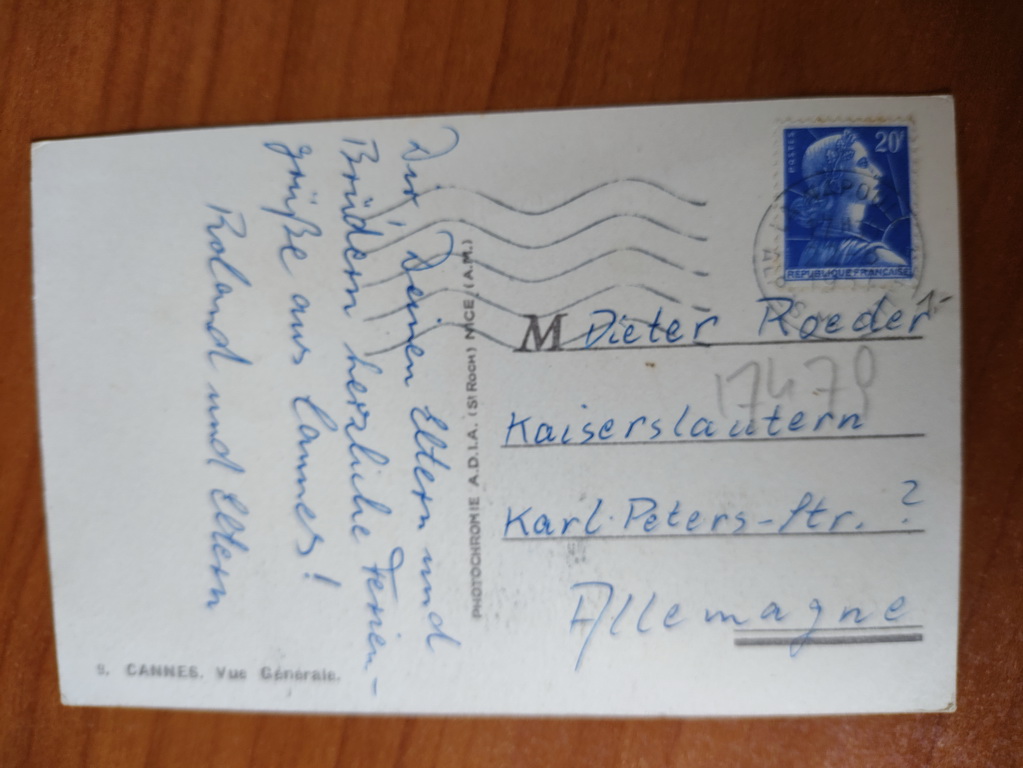 Dir, Deinen Eltern und
Brüdern herzliche Ferien-
grüße aus Cannes!
Roland und Eltern
9. CANNES. Vue Générale.
PHOTOCHROMIE A.D.I.A. (St ROCH) NICE (A.M.)
20F
REPUBLIQUE FRANÇAISE
M Dieter Roeder
17479
Kaiserslautern
Karl-Peters-Str. ?
Allemagne